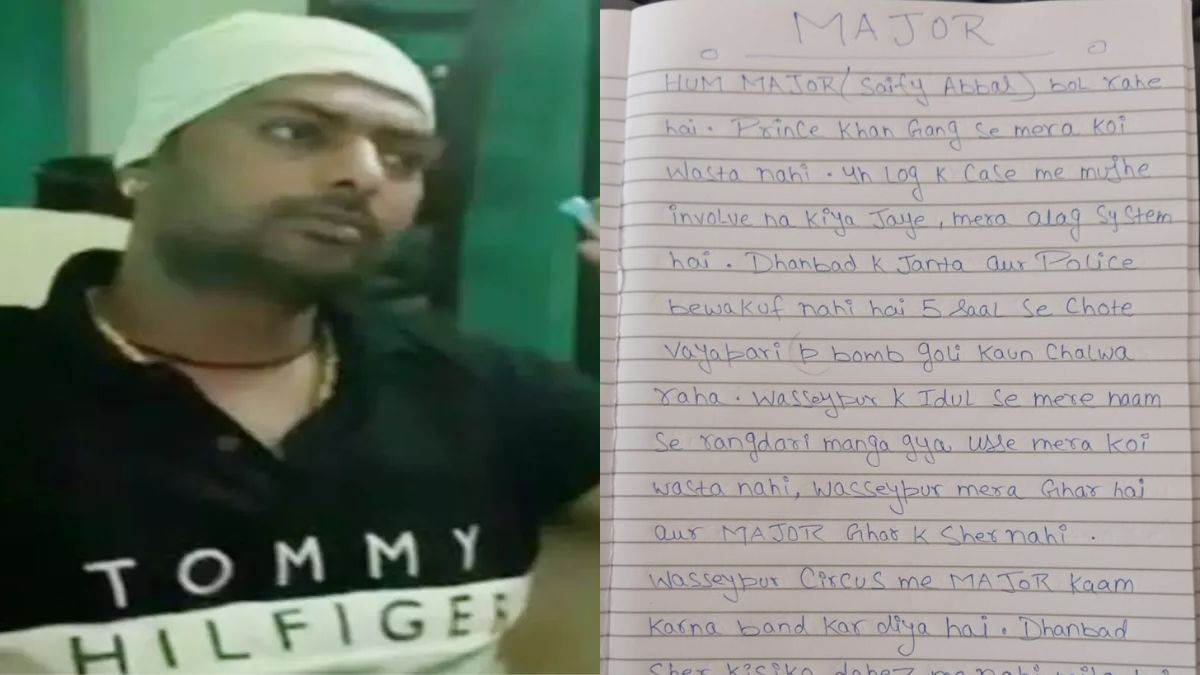 TOMMY
HILFIGER
MAJOR
HUM MAJOR (Saify Abbas) bol rahe
hai. Prince Khan Gang se mera koi
wasta nahi. yh Log K Case me mujhe
involve na Kiya Jaye, mera alag System
hai. Dhanbad K Janta aur Police
bewakuf nahi hai 5 Saal Se Chote
Vayapari p bomb goli Kaun Chalwa
raha. Wasseypur K Idul Se mere naam
Se rangdari manga gya usse mera Koi
wasta nahi, Wasseypur mera Ghar hai
aur MAJOR Ghar K Sher nahi.
Wasseypur Circus me MAJOR Kaam
Karna band Kar diya hai. Dhanbad
Sher Kisiko dahez me nahi